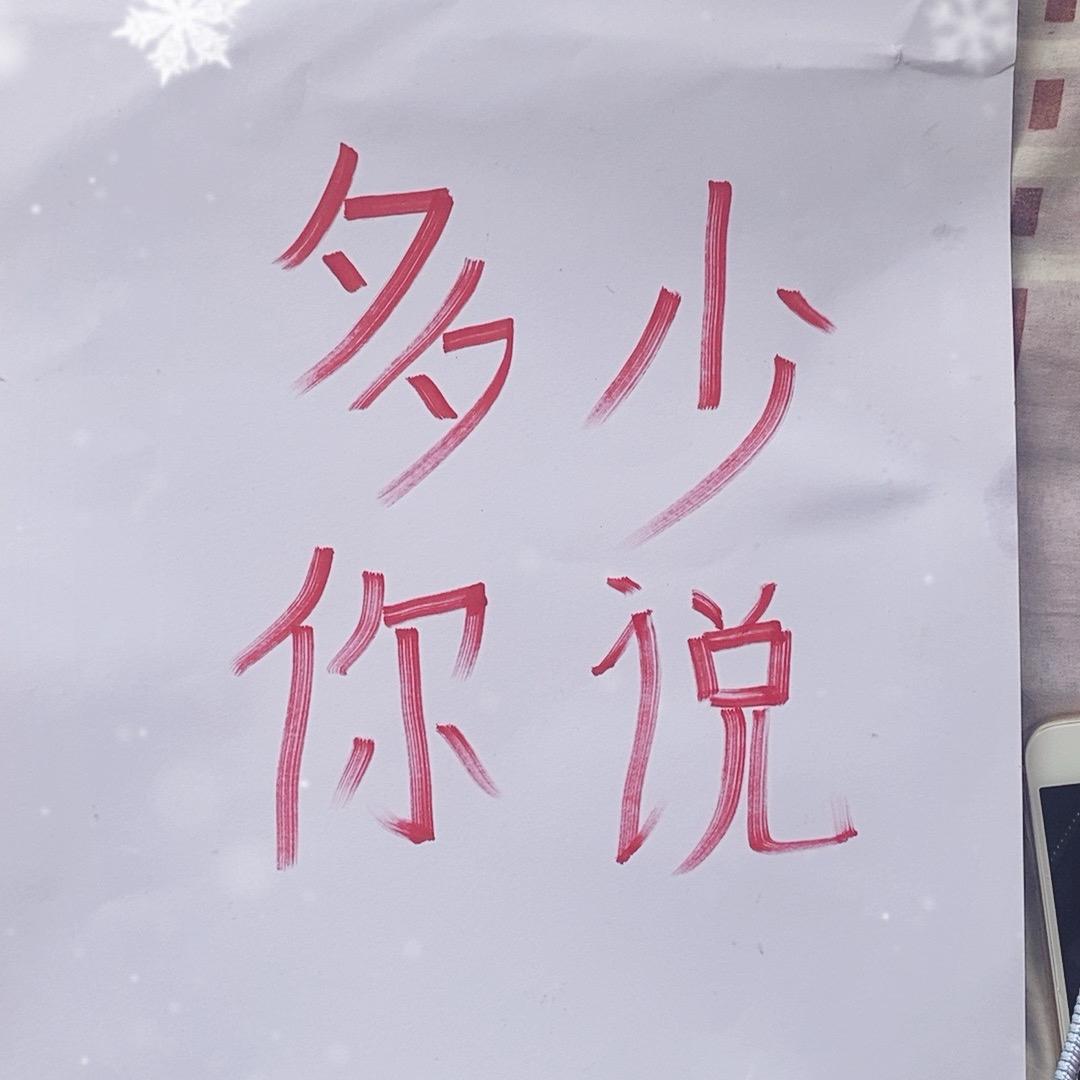 多少
你说